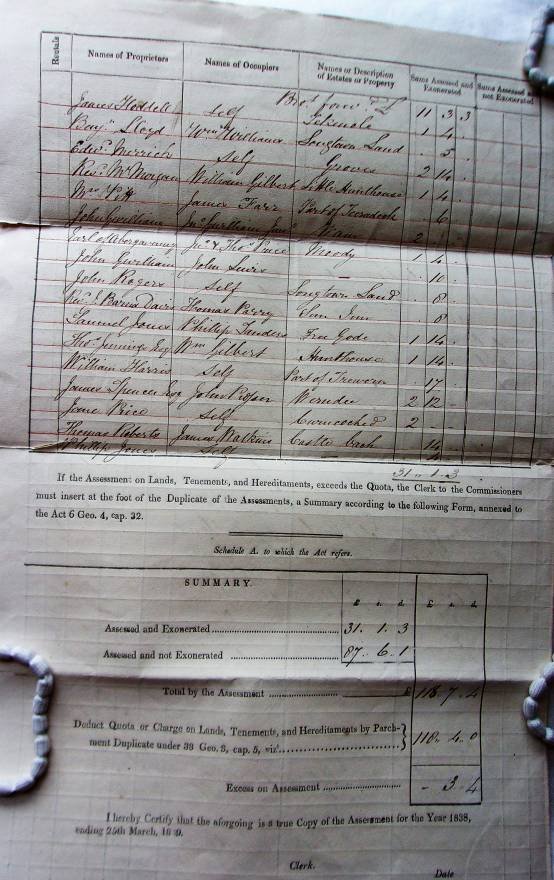 Rentals
Names of Proprietors Names of Occupiers Names or Description of Estates or Property Sums Assessed and Exonerated Sums Assessed and not Exonerated
Bro.t forw.d £ 11 3 3
James Self 1 4
Benj.n Lloyd W.m Williams Longtown Land 5
Edw.d Merrick Self Groves 2 14
Rev.d M.r Morgan William Gilbert Little Hunthouse 1 4
M.rs Pitt James Farr Part of 6
John Gwillim Jn.o Gwillim Jun.r 2
Earl of Abergavenny Jn.o & Tho.s Price Moody 1 4
John Gwillim John Lewis — 10
John Rogers Self Longtown Land 8
Davis Thomas Parry Sun Inn 8
Samuel Jones Phillip Sanders 1 14
Tho.s Jennings Esq W.m Gilbert Hunthouse 1 14
William Harris Self Part of 17
James Spencer Esq John Prosser Wernddu 2 12
Jane Price Self 2
Thomas Roberts James Watkins Castle 14
Phillip Jones Self 4
31 1 3
If the Assessment on Lands, Tenements, and Hereditaments, exceeds the Quota, the Clerk to the Commissioners
must insert at the foot of the Duplicate of the Assessments, a Summary according to the following Form, annexed to
the Act 6 Geo. 4, cap. 32.
Schedule A. to which the Act refers.
SUMMARY.
£ s. d. £ s. d.
Assessed and Exonerated 31. 1. 3
Assessed and not Exonerated 87. 6. 1
Total by the Assessment £ 118. 7. 4
Deduct Quota or Charge on Lands, Tenements, and Hereditaments by Parch-
ment Duplicate under 38 Geo. 3, cap. 5, viz. 118. 4. 0
Excess on Assessment - 3. 4
I hereby Certify that the aforgoing is a true Copy of the Assessment for the Year 1838,
ending 25th March,
Clerk.
Date